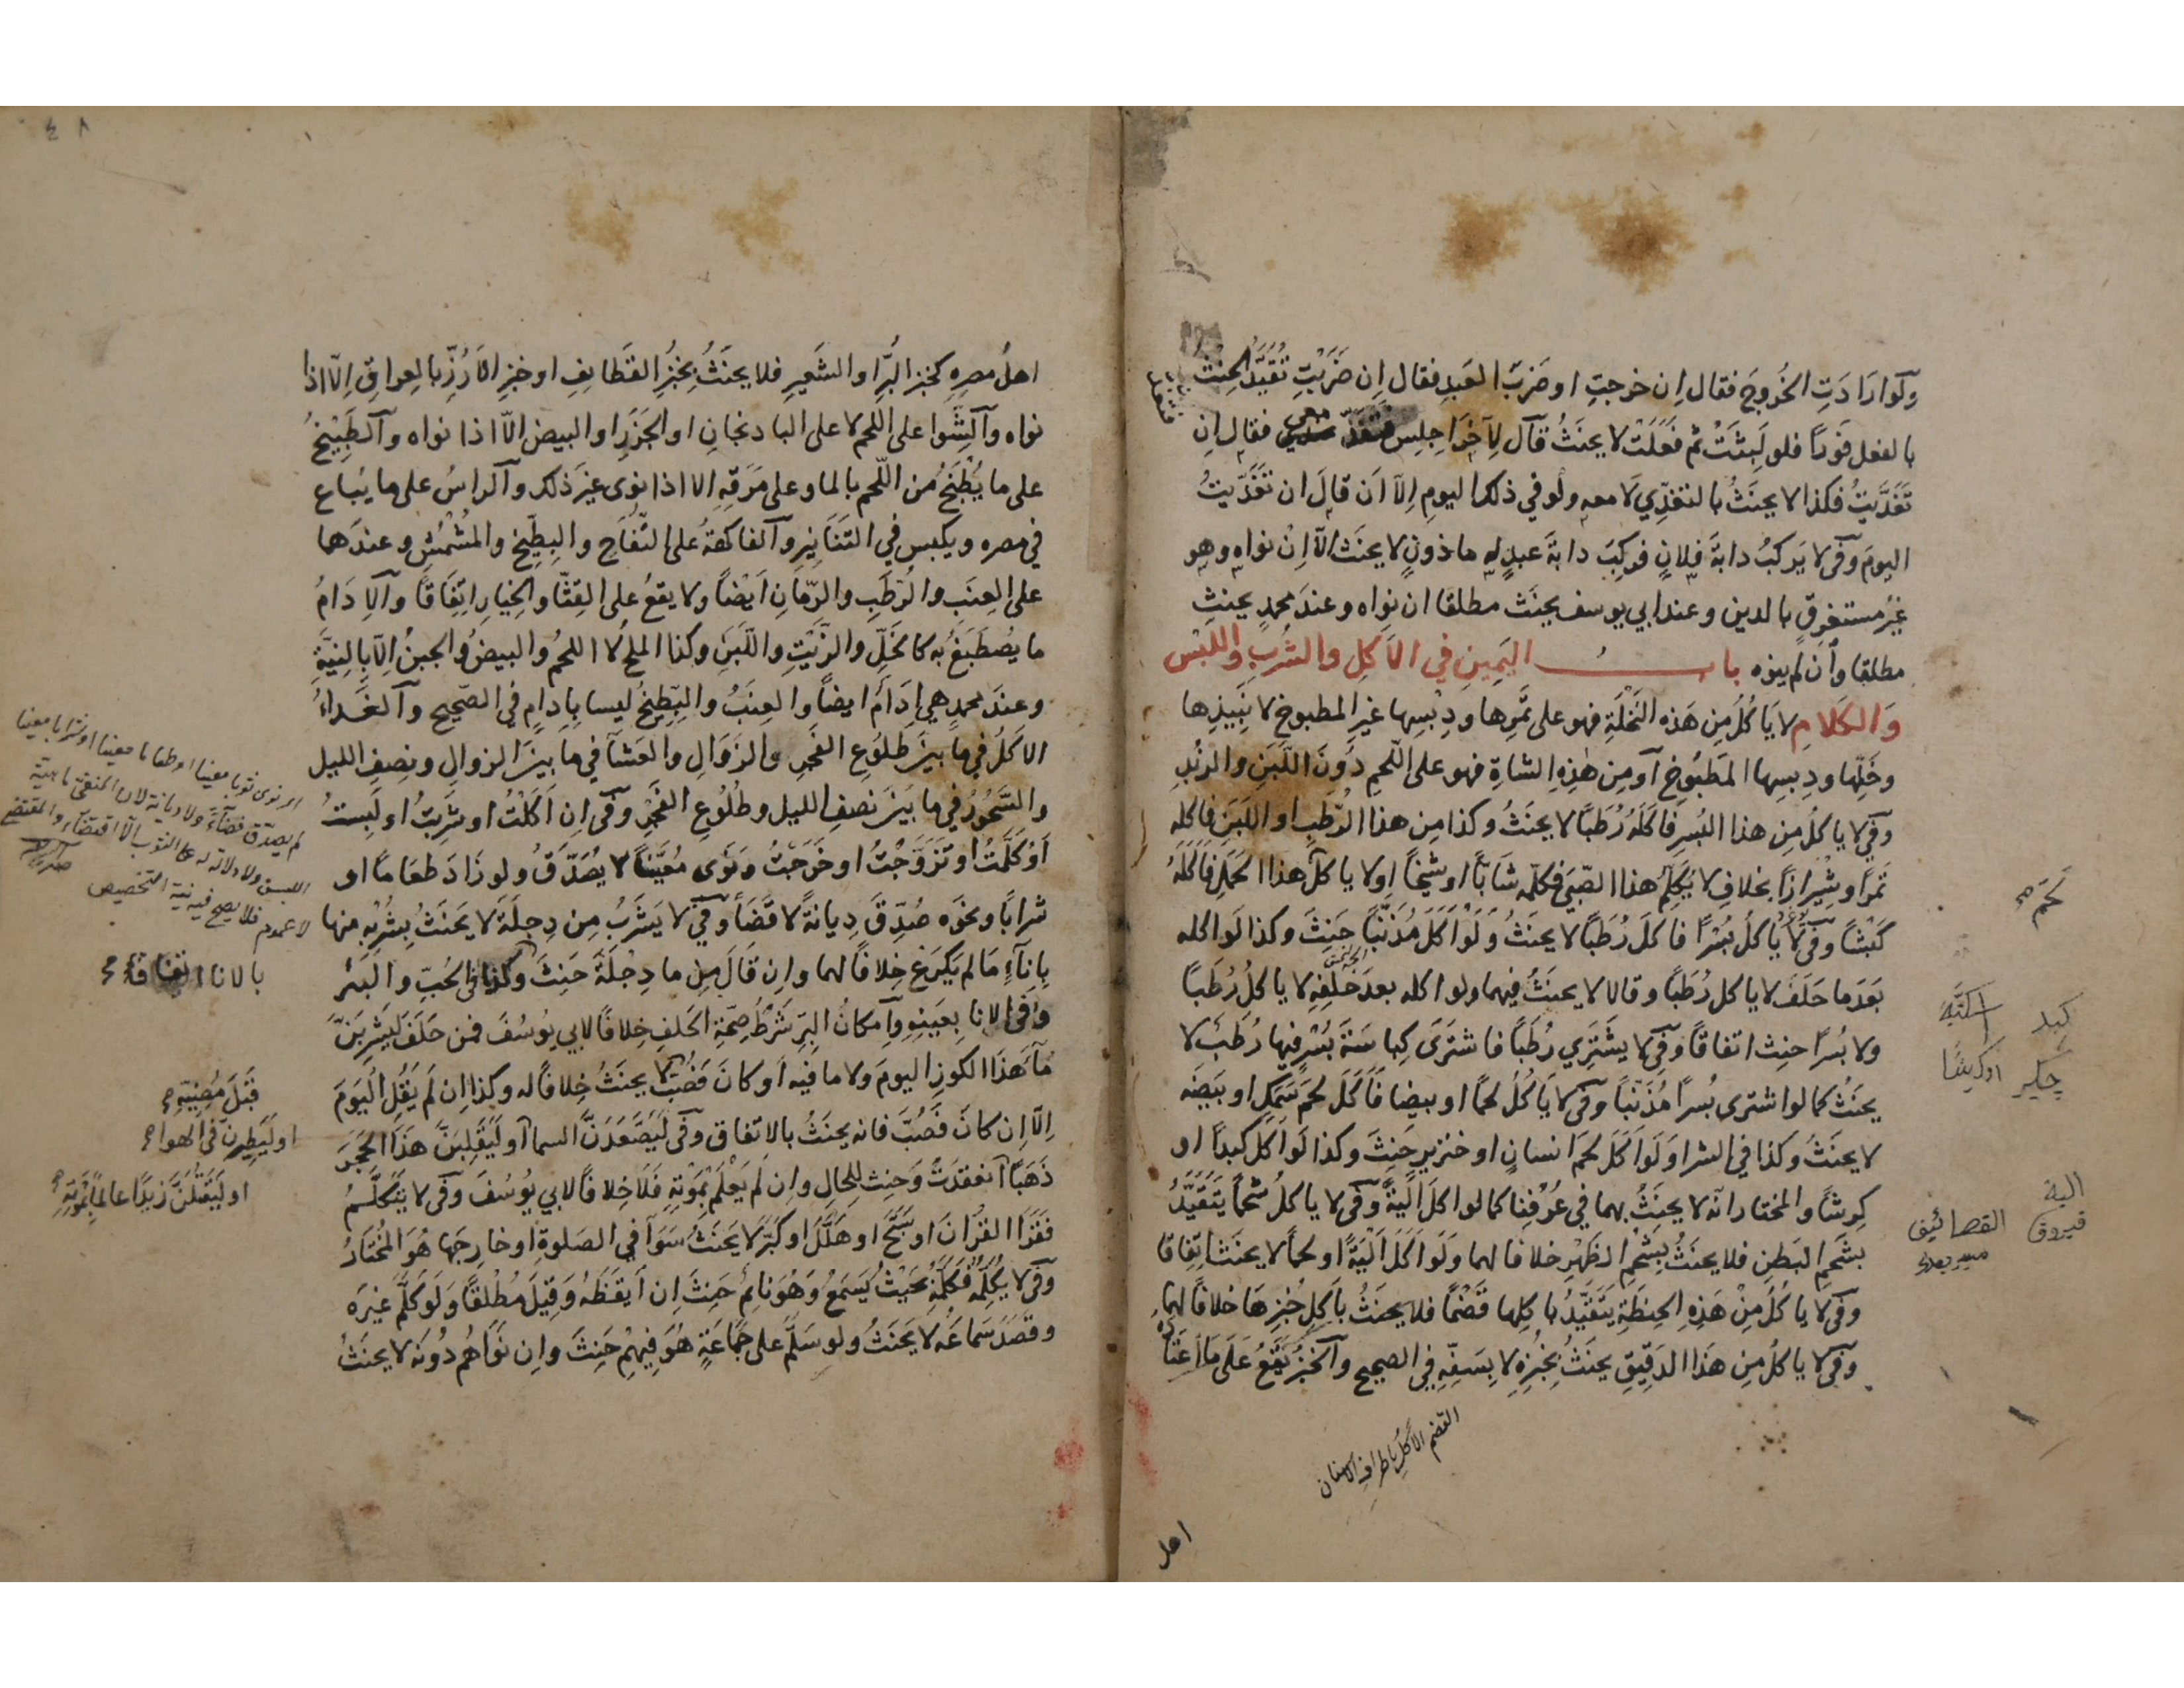 ولو ارادت الخروج فقال ان خرجتِ او ضربَ العبدِ فقال اِن ضربتِ تقيّد الحنث
بالفعل فورًا فلو لبثت ثم فعلت لا يحنث قال لآخر اجلس فتغدّ معي فقال ان
تغدّيت فكذا لا يحنث بالتغدّي لا معه ولو في ذلك اليوم اِلّا اَن قال ان تغدّيت
اليوم وفي لا يركبُ دابةَ فلانٍ فركبَ دابةَ عبدٍ له ماذونٍ لا يحنث الّا اِن نواه وهو
غيرُ مستغرقٍ بالدين وعند ابي يوسف يحنث مطلقا ان نواه وعند محمدٍ يحنث
مطلقا وان لم ينوه باب اليمينِ في الاَكلِ والشربِ واللبْس
والكلامِ لا يَاكلُ مِن هَذه النخلَةِ فهو على ثمرها ودِبْسِها غيرِ المطبوخ لا نبيذِها
وخلِّها ودبسِها المطبوخ اَو من هٰذِه الشاةِ فهو على اللّحمِ دونَ اللّبنِ والزبْدِ
وفي لا ياكلُ مِن هذا البُسرِ فاكله رُطبًا لا يحنثُ وكذا مِن هذا الرّطبِ او اللبَنِ فاكله
تمرًا وشيرازًا بخلاف لا يُكلّمُ هذا الصّبيَّ فكلّمه شابًّا او شيخًا او لا ياكلُ هذا الحمَلَ فاَكلهُ
كبشًا وفي لا ياكلُ بُسْرًا فاكلَ رُطَبًا لا يحنثُ وَلَوْ اَكَلَ مُذَنّبًا حنِثَ وكذا لَو اكله
بَعدَ ما حَلَفَ لا ياكل رُطَبًا وقالا لا يحنثُ فيهما ولو اكله بعدَ حلفِه لا ياكلُ رُطَبًا
ولا بُسرًا حنِث اتفاقًا وفي لا يشترِي رُطَبًا فاشترى كِباسَةَ بُسْرٍ فيها رُطبٌ لا
يحنثُ كما لو اشترى بُسرًا مُذَنّبًا وفي لا يَاكلُ لحمًا او بيضا فاَكَلَ لحمَ سَمَكٍ او بيضَه
لا يحنثُ وكذا في الشرا وَلَو اَكلَ لحمَ انسانٍ او خنزيرٍ حنِثَ وكذا لو اَكلَ كبدًا او
كِرشًا والمختار انّه لا يحنثُ بهما في عُرْفِنا كما لو اكلَ اَليةً وفي لا ياكلُ شحمًا يتقيّدُ
بشحمِ البَطنِ فلا يحنثُ بِشحمِ الظهرِ خلافا لهما وَلَو اَكَلَ اَليَةً او لحمًا لا يحنث اتفاقا
وفي لا ياكلُ مِنْ هَذِهِ الحِنطَةِ يتَقيّدُ باكلِها قَضْمًا فلا يحنثُ باَكلِ خُبزِهَا خلافًا لهما
وفي لا ياكلُ مِن هَذا الدقيقِ يحنثُ بِخبزِه لا بِسَفّهِ في الصحيح والخبزُ يقعُ عَلَى مَا اعتاده
لحم
كبد
جكر
كرشًا
الية
قيروق
القضم الاَكلُ باطرافِ الاسنان
اهل
٤٨
اهلُ مصرِه كخبزِ البُرّ والشعيرِ فلا يحنثُ بِخبزِ القطايفِ او خبزِ الاَرُزِّ بالعراقِ اِلّا اذا
نواه والشّوا على اللحم لا على الباذنجانِ او الجزرِ او البيض الّا اذا نواه والطبيخُ
على ما يُطْبَخُ من اللّحمِ بالما وعلى مَرَقِهِ الا اذا نوى غيرَ ذلك والراسُ على ما يُباع
في مصره ويكبس في التنانيرِ والفاكهةُ على التّفّاحِ والبِطّيخِ والمُشْمُشِ وعندهما
على العِنَبِ والرّطبِ والرّمّانِ ايضًا ولا يقعُ على القِثّا والخِيارِ اتِفَاقًا والاِدَامُ
ما يُصْطبَغُ به كالخَلِّ والزّيتِ واللّبَنِ وكذا الملحُ لا اللحمُ والبيضُ والجبنُ اِلّا بِالنيّةِ
وعندَ محمدٍ هي اِدَامٌ ايضًا والعِنَبُ والبطّيخُ ليسا بِادامٍ في الصّحيح والغَداءُ
الاكلُ فيما بينَ طلُوعِ الفَجرِ والزوَالِ والعَشآ فيما بينَ الزوالِ ونِصفِ الليل
والسَّحُورُ فيما بَينَ نصفِ الليل وطُلُوعِ الفَجْرِ وفي اِن اَكلتُ او شربتُ او لَبِستُ
اَو كلَّمتُ او تزوّجْتُ او خَرَجْتُ وَنَوَى مُعَيّنًا لا يُصَدّقُ ولو زادَ طعَامًا او
شرابًا ونحوَه صُدّقَ دِيانةً لا قَضَاً وفي لا يَشرَبُ مِن دِجلةَ لا يَحنثُ بشُرْبِه منها
بِاِنآءٍ مَا لم يَكرَعْ خِلافًا لهما واِن قالَ مِن ما دِجْلةَ حنِثَ وكذا في الجُبّ والبئر
وفي الانا بِعَينِه واِمكانُ البِرِّ شَرْطُ صِحّةِ الحَلفِ خِلافًا لابي يُوسُفَ فمن حَلَفَ لَيشربنّ
مآ هَذا الكوزِ اليومَ ولا ما فيه اَو كانَ فَصُبّ لا يحنثُ خِلافًا له وكذا اِن لَم يَقُلِ اليَومَ
اِلّا اِن كانَ فَصُبَّ فانه يحنثُ بالاتفاق وفي لَيَصْعَدَنّ السمآ او ليَقْلِبَنّ هَذَا الحجرَ
ذَهَبًا انعقدَتْ وَحنِث للحالِ واِن لَم يَعْلَم بمَوْتِهِ فَلا خِلافًا لابي يُوسُفَ وفي لا يتكلّمُ
فَقَرَا القُرْانَ او سَبّحَ او هَلَّلَ او كَبّرَ لا يَحنثُ سَوَآ في الصلوةِ او خارِجَها هُوَ المُختَارُ
وفي لا يُكلّمُه فكلّمَهُ بحَيْثُ يَسمَعُ وَهُو نَائمٌ حنِثَ اِن اَيقظَهُ وقِيلَ مُطْلَقًا وَلَو كَلّمَ غيرَه
وقَصَدَ سَماعَه لا يَحنثُ ولو سَلّمَ على جَمَاعَةٍ هُوَ فيهِمْ حنِثَ واِن نَوَاهُم دُونَه لا يحنثُ
لم يصدّق قضآءً ولا ديانة لان
لا عموم له فلا يصح فيه نية التخصيص
بالانا اتفاقا
قبلَ مُضِيّهِ
او ليَطِيرنّ في الهوا
او ليَقْتُلَنّ زيدًا عالمًا بمَوْتِهِ